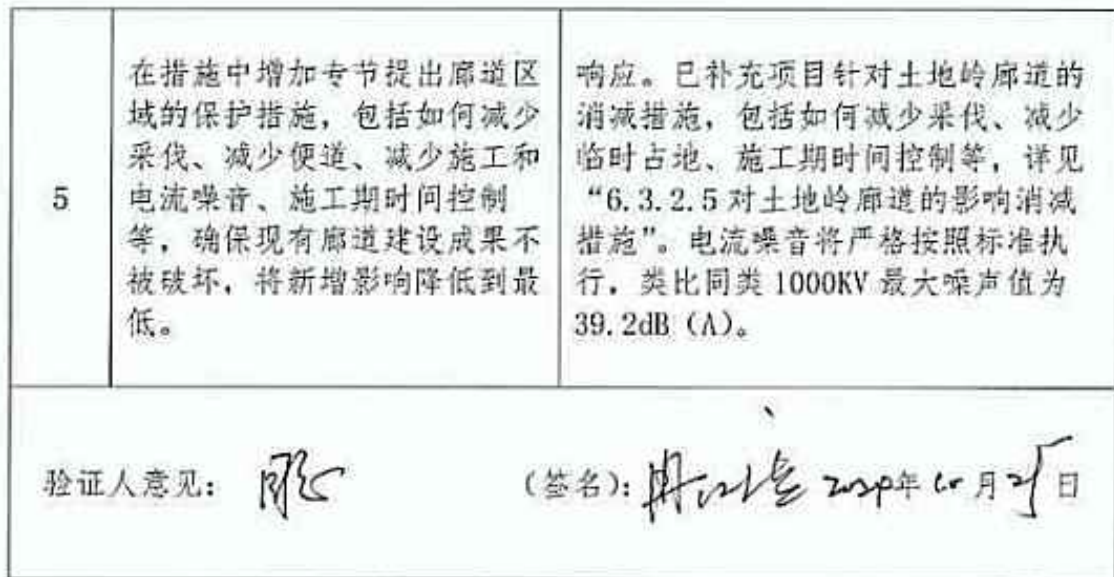 在措施中增加专节提出廊道区
域的保护措施，包括如何减少
采伐、减少便道、减少施工和
5
电流噪音、施工期时间控制
等，确保现有廊道建设成果不
被破坏，将新增影响降低到最
低。
响应。已补充项目针对土地岭廊道的
消减措施，包括如何减少采伐、减少
临时占地、施工期时间控制等，详见
“6.3.2.5 对土地岭廊道的影响消减
措施”。电流噪音将严格按照标准执
行，类比同类 1000KV 最大噪声值为
39.2dB（A）。
验证人意见： （签名）： 2024年10月25日